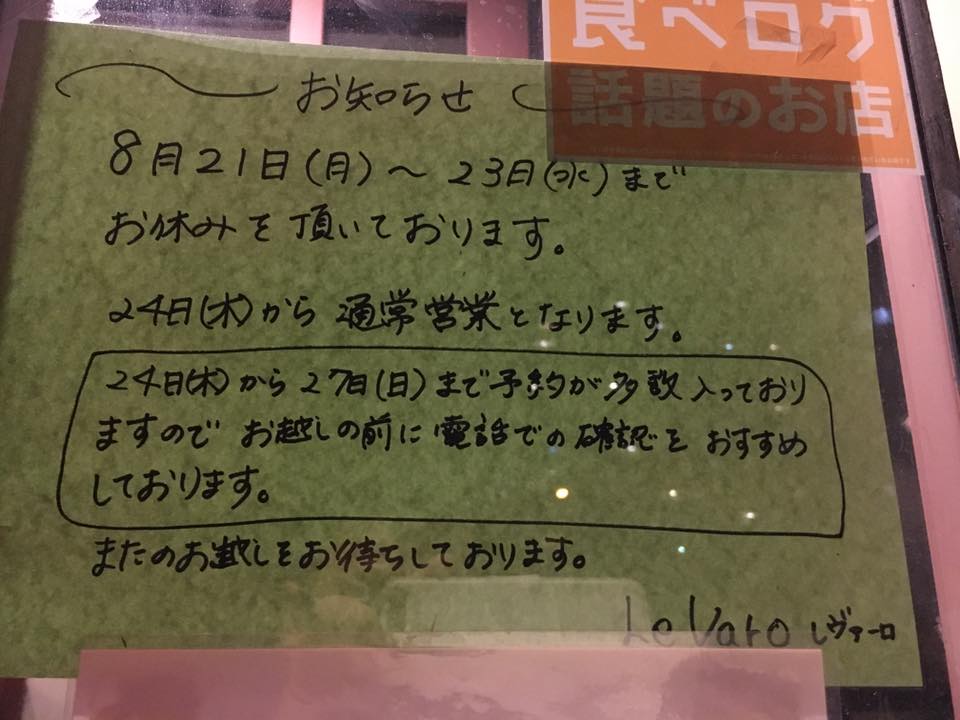 食べログ
話題のお店
お知らせ
8月21日(月)〜23日(水)まで
お休みを頂いております。
24日(木)から通常営業となります。
24日(木)から27日(日)まで予約が多数入っており
ますので お越しの前に電話での確認を おすすめ
しております。
またのお越しをお待ちしております。
Le Varo レヴァーロ